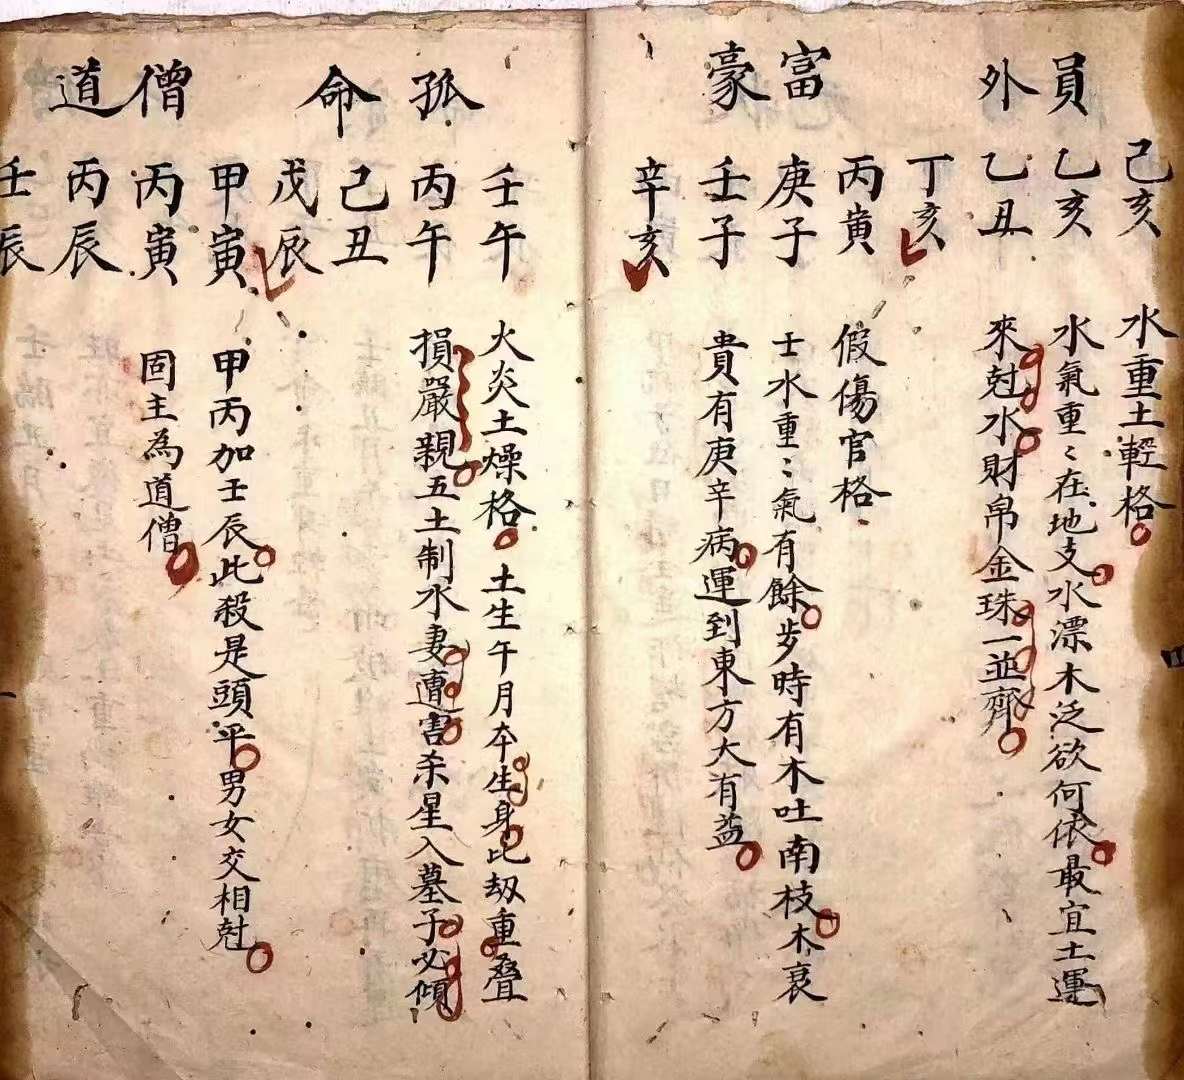 員外
己亥
乙亥
乙丑
丁亥
水重土輕格
水氣重〻在地支水漂木泛欲何依最宜土運
來尅水財帛金珠一並齊
富豪
丙寅
庚子
壬子
辛亥
假傷官格
壬水重〻氣有餘步時有木吐南枝木衰
貴有庚辛病運到東方大有益
孤命
壬午
丙午
己丑
戊辰
火炎土燥格 土生午月本生身比刼重叠
損嚴親五土制水妻遭害杀星入墓子必傾
僧道
甲寅
丙寅
丙辰
壬辰
甲丙加壬辰此殺是頭平男女交相尅
固主為道僧